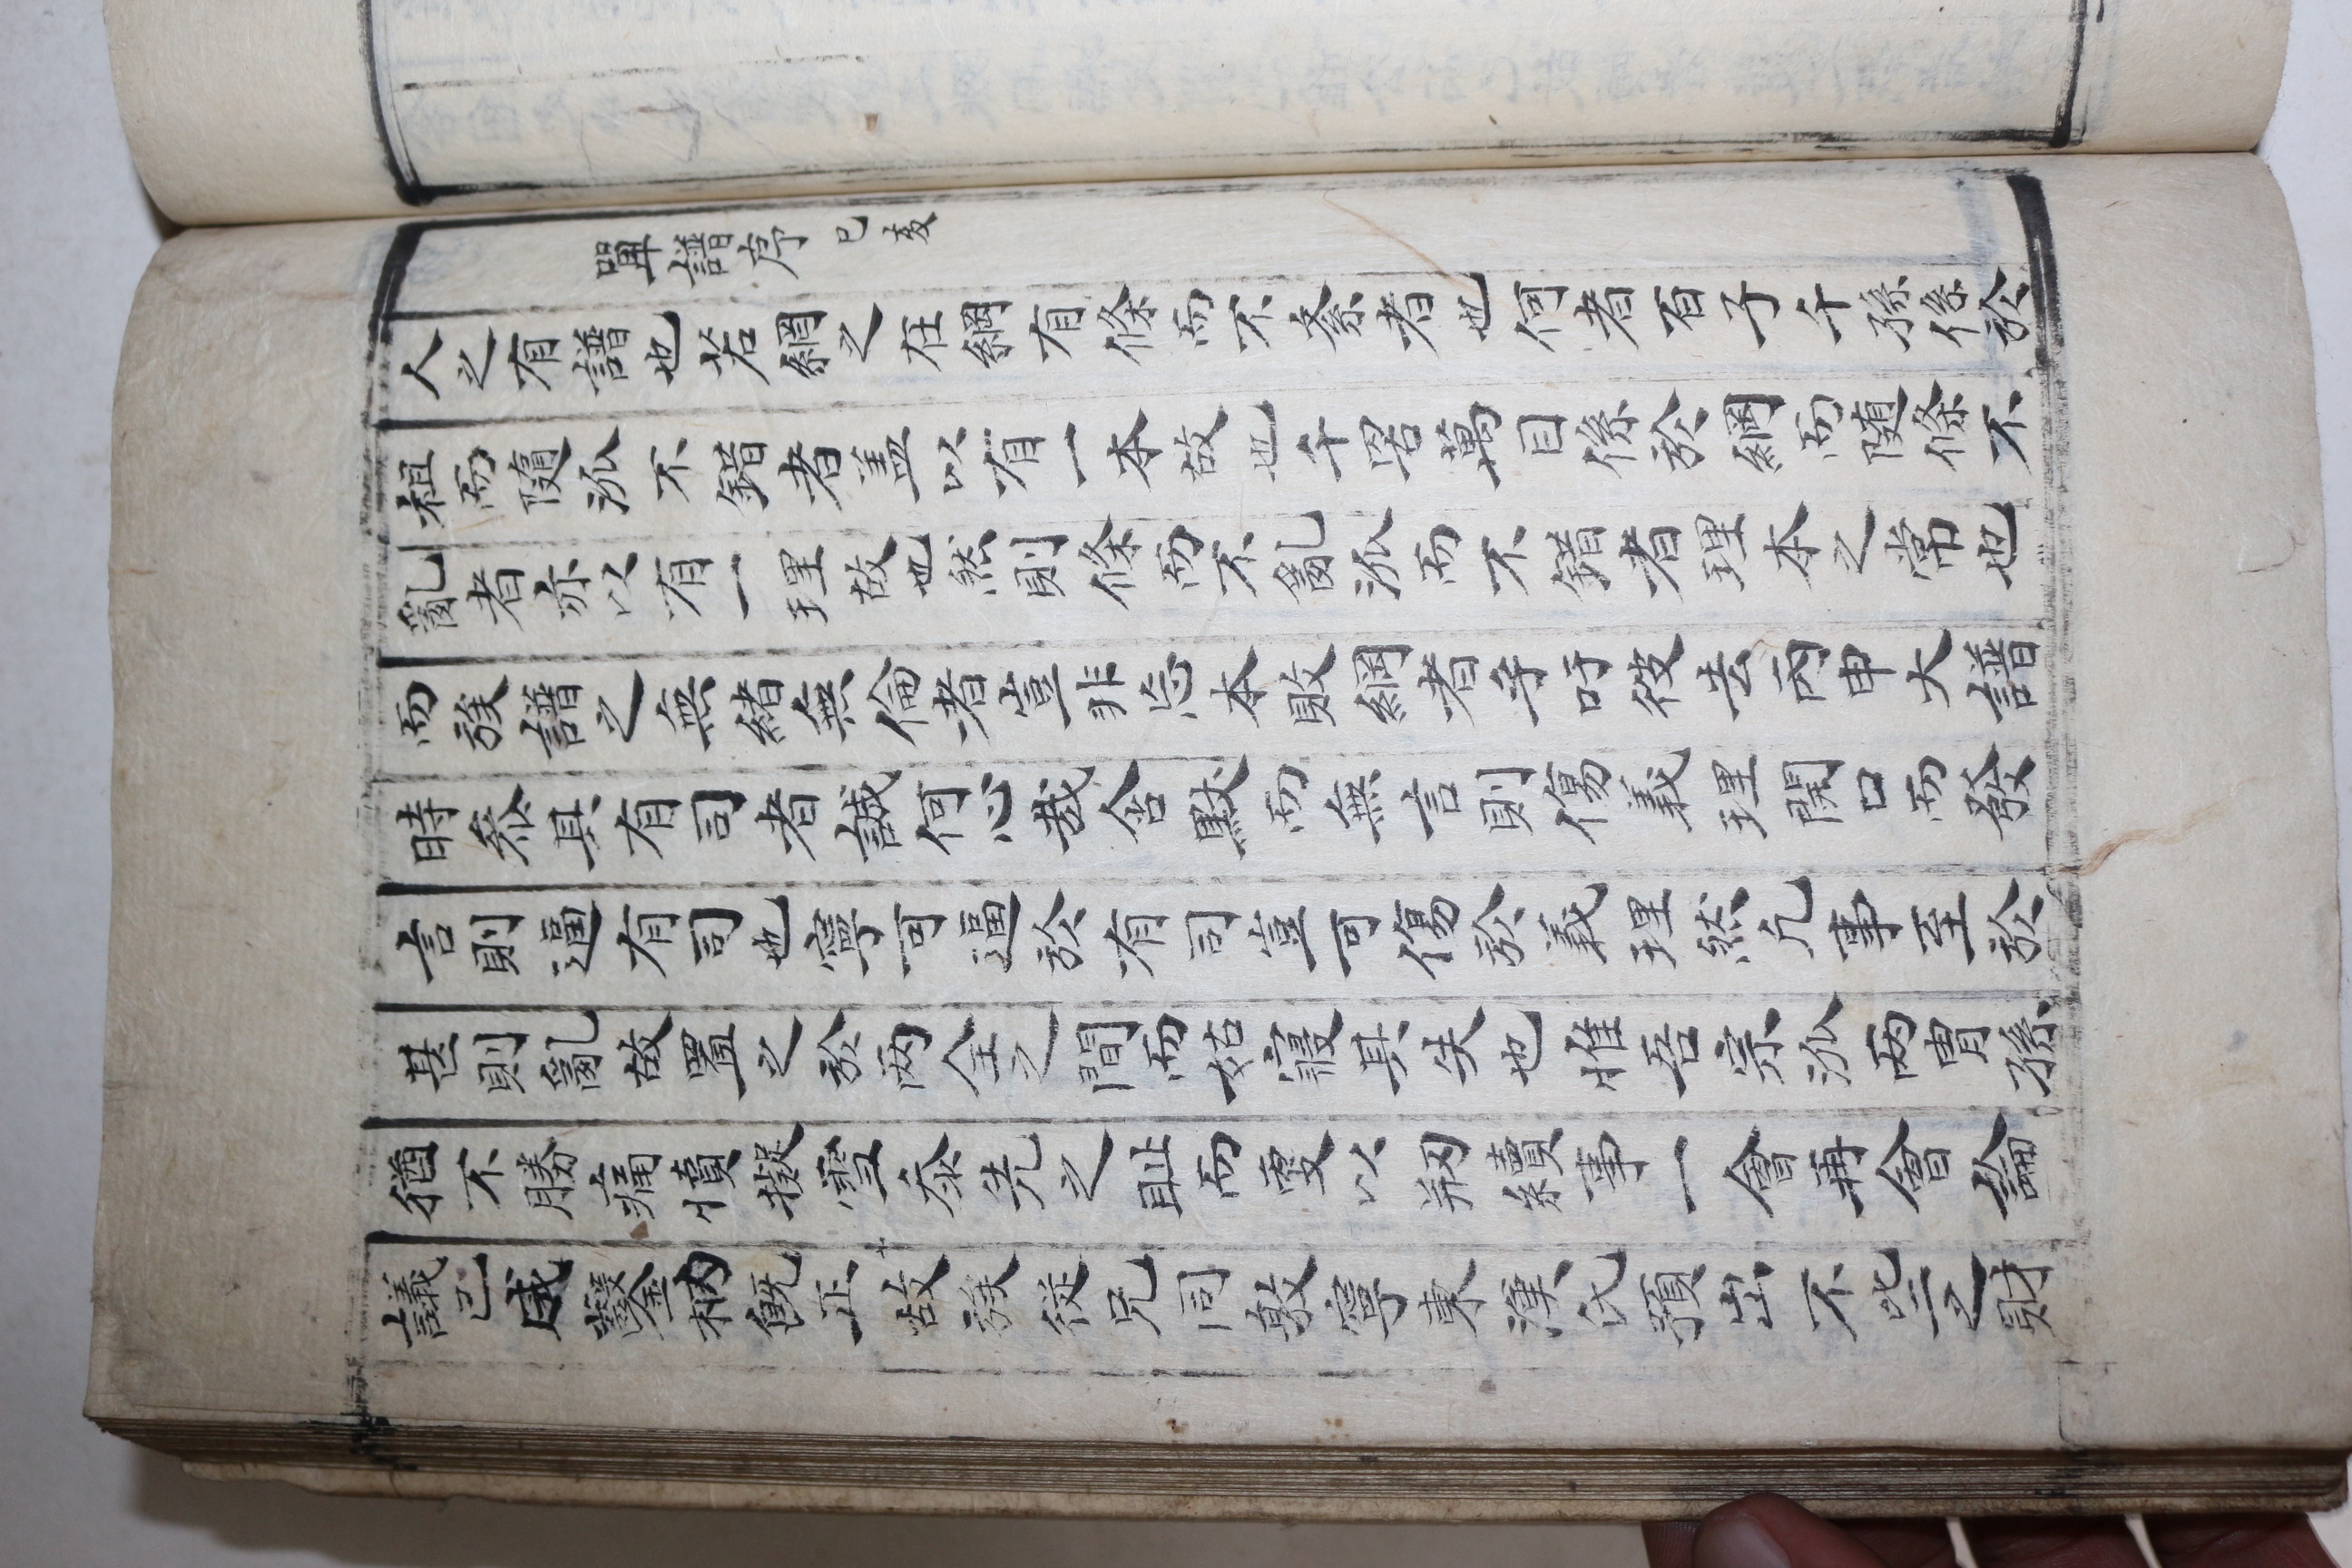 單譜序 己亥
人之有譜也若網之在綱有條而不紊者也何者百子千孫係於
祖而隨派不錯者盖以有一本故也千罟萬目係於綱而随條不
亂者亦以有一理故也然則條而不亂派而不錯者理本之常也
而族譜之無緒無倫者豈非忘本敗綱者乎吁彼去丙申大譜
時叅其有司者誠何心哉含默而無言則傷義理開口而發
言則逼有司也寧可逼於有司豈可傷於義理然凡事至於
甚則亂故置之於兩全之間而姑寢其失也惟吾宗派兩胄孫
猶不勝痛憤擬雪忝先之耻而更以刱續事一會再會論
議已咸鑿枘旣正故族從兄同敦寧東漢氏預出不些之財